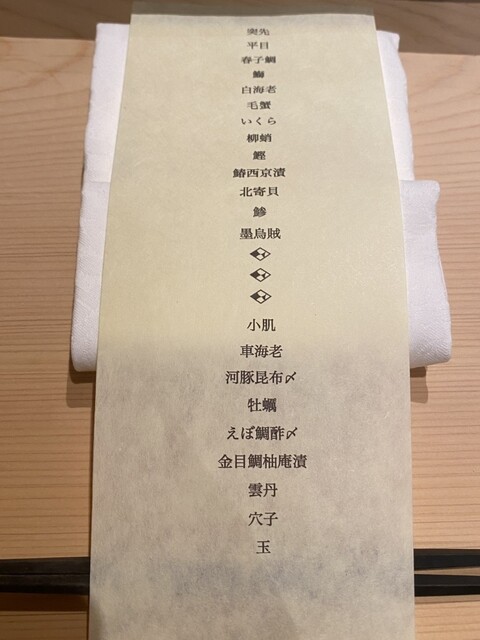 突先
平目
春子鯛
鰤
白海老
毛蟹
いくら
柳蛸
鰹
鰆西京漬
北寄貝
鯵
墨烏賊
小肌
車海老
河豚昆布〆
牡蠣
えぼ鯛酢〆
金目鯛柚庵漬
雲丹
穴子
玉